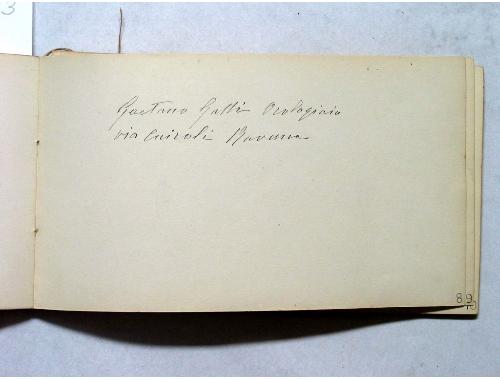 3
Gaetano Galli Orologiaio
via Cairoli Ravenna
89